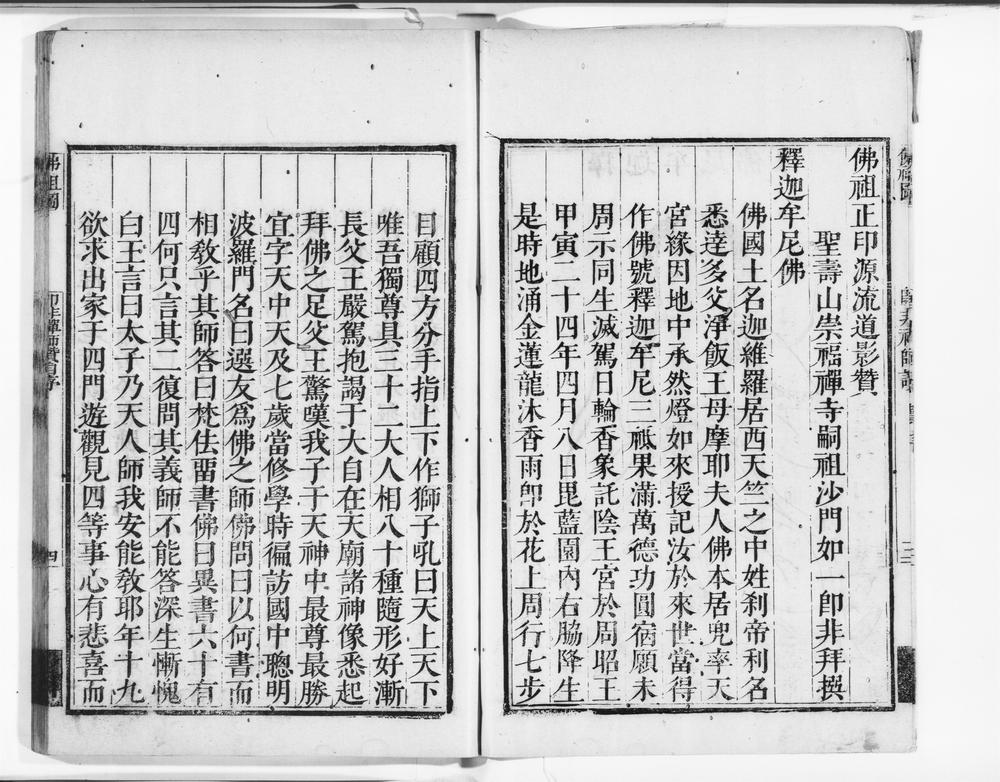 佛祖正印源流道影贊
聖壽山崇福禪寺嗣祖沙門如一卽非拜撰
釋迦牟尼佛
佛國土名迦維羅居西天竺之中姓刹帝利名
悉達多父淨飯王母摩耶夫人佛本居兜率天
宮緣因地中承然燈如來授記汝於來世當得
作佛號釋迦牟尼三祗果滿萬德功圓宿願未
周示同生滅駕日輪香象託陰王宮於周昭王
甲寅二十四年四月八日毘藍園內右脇降生
是時地涌金蓮龍沐香雨卽於花上周行七步
目顧四方分手指上下作獅子吼曰天上天下
唯吾獨尊具三十二大人相八十種隨形好漸
長父王嚴駕抱謁于大自在天廟諸神像悉起
拜佛之足父王驚嘆我子于天神中最尊最勝
宜字天中天及七歲當修學時徧訪國中聰明
波羅門名曰選友爲佛之師佛問曰以何書而
相敎乎其師答曰梵佉畱書佛曰異書六十有
四何只言其二復問其義師不能答深生慚愧
白王言曰太子乃天人師我安能敎耶年十九
欲求出家于四門遊觀見四等事心有悲喜而
四